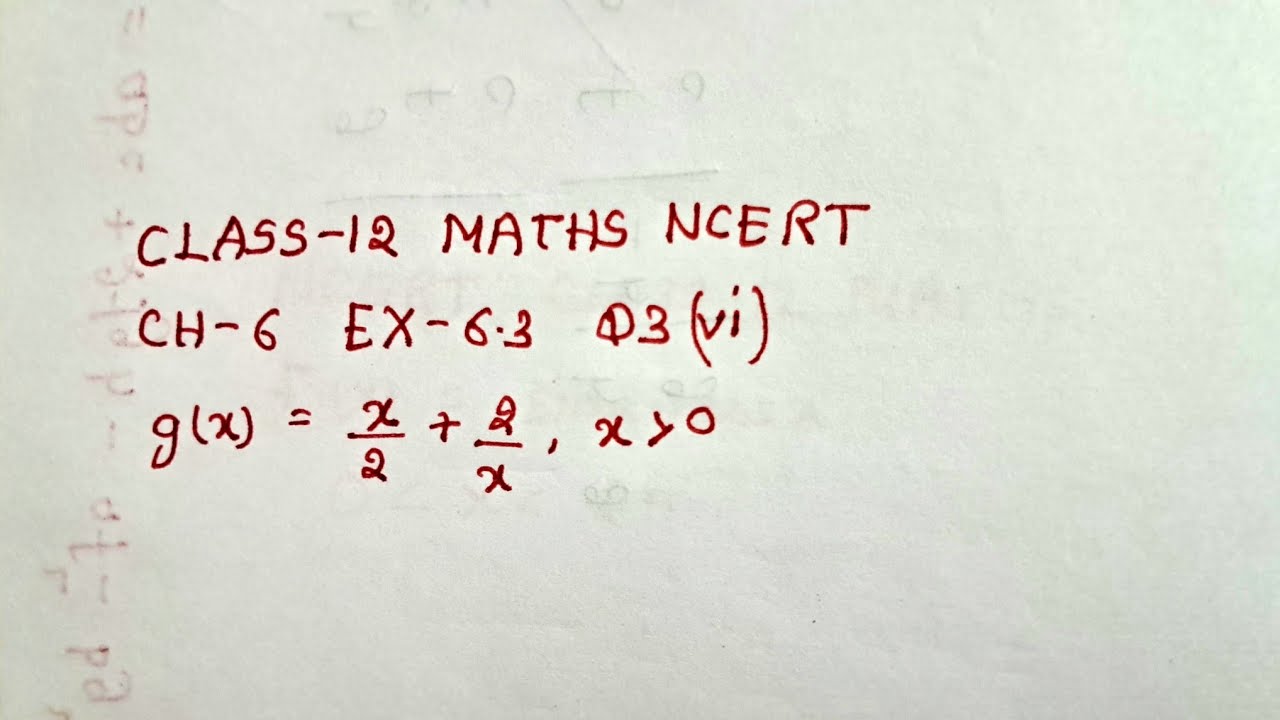 CLASS-12 MATHS NCERT
CH-6 EX-6.3 Q3 (vi)
g(x) = x/2 + 2/x, x > 0